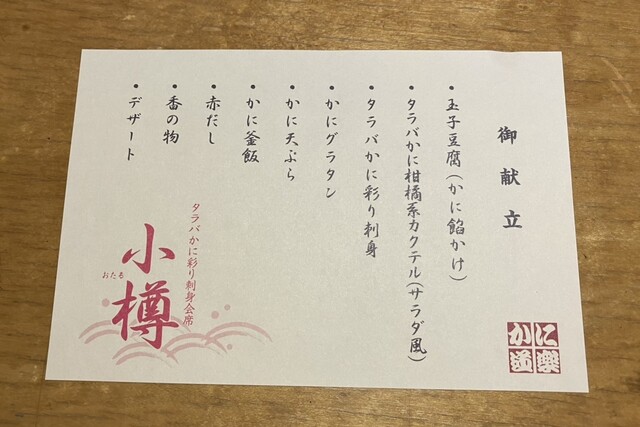 御献立
・玉子豆腐(かに餡かけ)
・タラバかに柑橘系カクテル(サラダ風)
・タラバかに彩り刺身
・かにグラタン
・かに天ぷら
・かに釜飯
・赤だし
・香の物
・デザート
タラバかに彩り刺身会席
小樽
おたる
かに道楽